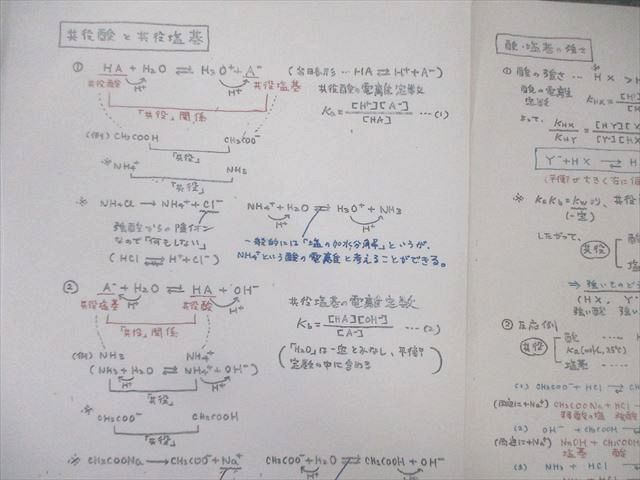 共役酸と共役塩基
① HA + H2O ⇌ H3O+ + A- (省略形 … HA ⇌ H+ + A-)
H+
共役酸 共役塩基 共役酸の電離定数
「共役」関係 Ka = [H+][A-] / [HA] …(1)
(例) CH3COOH CH3COO-
「共役」
※ NH4+ NH3
「共役」
※ NH4Cl → NH4+ + Cl- NH4+ + H2O ⇌ H3O+ + NH3
H+ H+
強酸からの陰イオン
なので「何もしない」
(HCl ⇌ H+ + Cl-)
一般的には「塩の加水分解」というが、
NH4+という酸の電離と考えることができる。
② A- + H2O ⇌ HA + OH-
H+ H+
共役塩基 共役酸 共役塩基の電離定数
「共役」関係 Kb = [HA][OH-] / [A-] …(2)
(例) NH3 NH4+
(NH3 + H2O ⇌ NH4+ + OH-)
H+ H+
「共役」
(「H2O」は一定とみなし、平衡
定数の中に含める)
※ CH3COO- CH3COOH
「共役」
※ CH3COONa → CH3COO- + Na+ CH3COO- + H2O ⇌ CH3COOH + OH-
H+ H+
酸・塩基の強さ
① 酸の強さ … HX >
酸の電離
定数 KHX = [H
よって、 KHX / KHY = [HY][ / [Y-][HX
Y- + HX ⇌
(平衡が大きく右に
※ KaKb = Kw より、共役
(一定)
したがって、 共役 酸
塩
⇒ 強いもの
(HX, Y-
強い酸 強い
② 反応例
共役 酸 …
Ka(mol/L, 25℃)
塩基 …
(1) CH3COO- + HCl
(両辺に+Na+) CH3COONa + HCl
弱酸の塩 強酸
(2) OH- + CH3COOH
(両辺に+Na+) NaOH + CH3COOH
塩基 酸
(3) NH3 + HCl